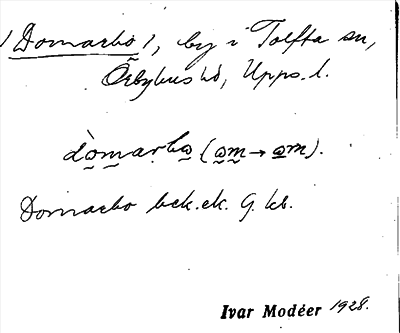 /Domarbo/, by i Tolfta sn,
Örbyhus hd, Upps. l.
dòmarbω (ωm → ωm).
Domarbo bek. ek. G. kb.
Ivar Modéer 1928.